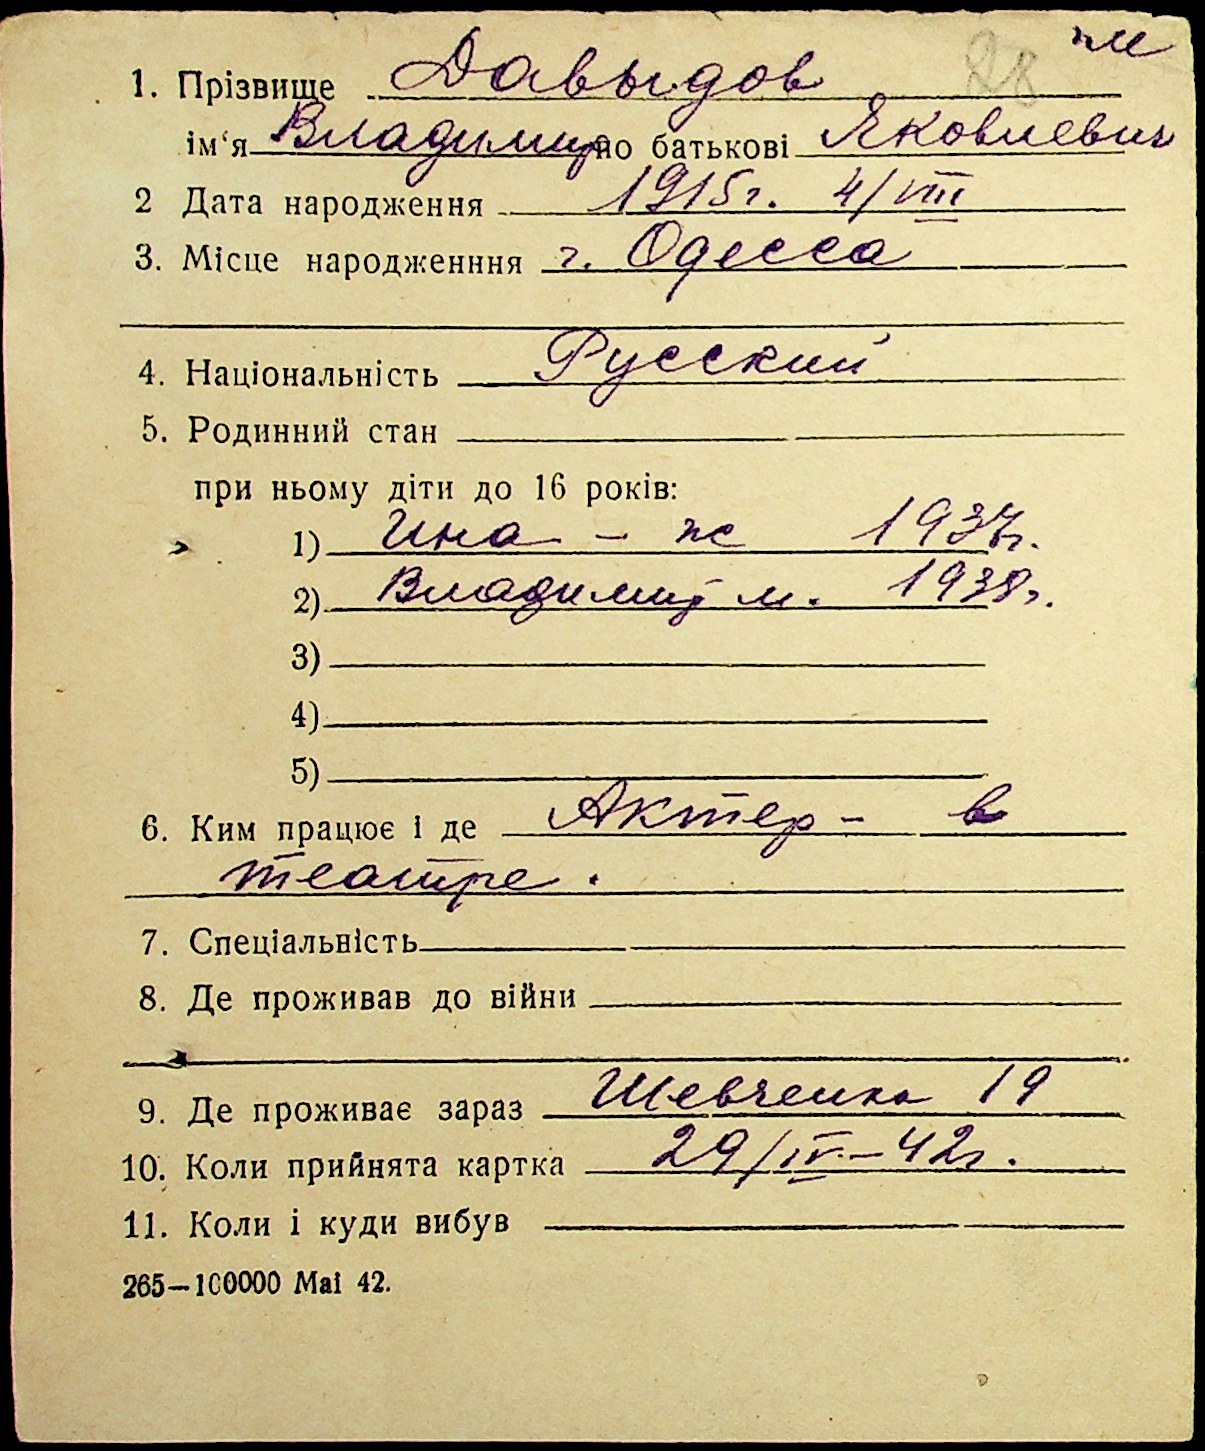 28 м
1. Прізвище Давыдов
ім‘я Владимир по батькові Яковлевич
2 Дата народження 1915г. 4/VIII
3. Місце народженння г. Одесса
4. Національність Русский
5. Родинний стан
при ньому діти до 16 років:
1) Ина - ж 1937г.
2) Владимир м. 1938г.
3)
4)
5)
6. Ким працює і де Актер - в
театре.
7. Спеціальність
8. Де проживав до війни
9. Де проживає зараз Шевченка 19
10. Коли прийнята картка 29/IV-42г.
11. Коли і куди вибув
265—100000 Mai 42.